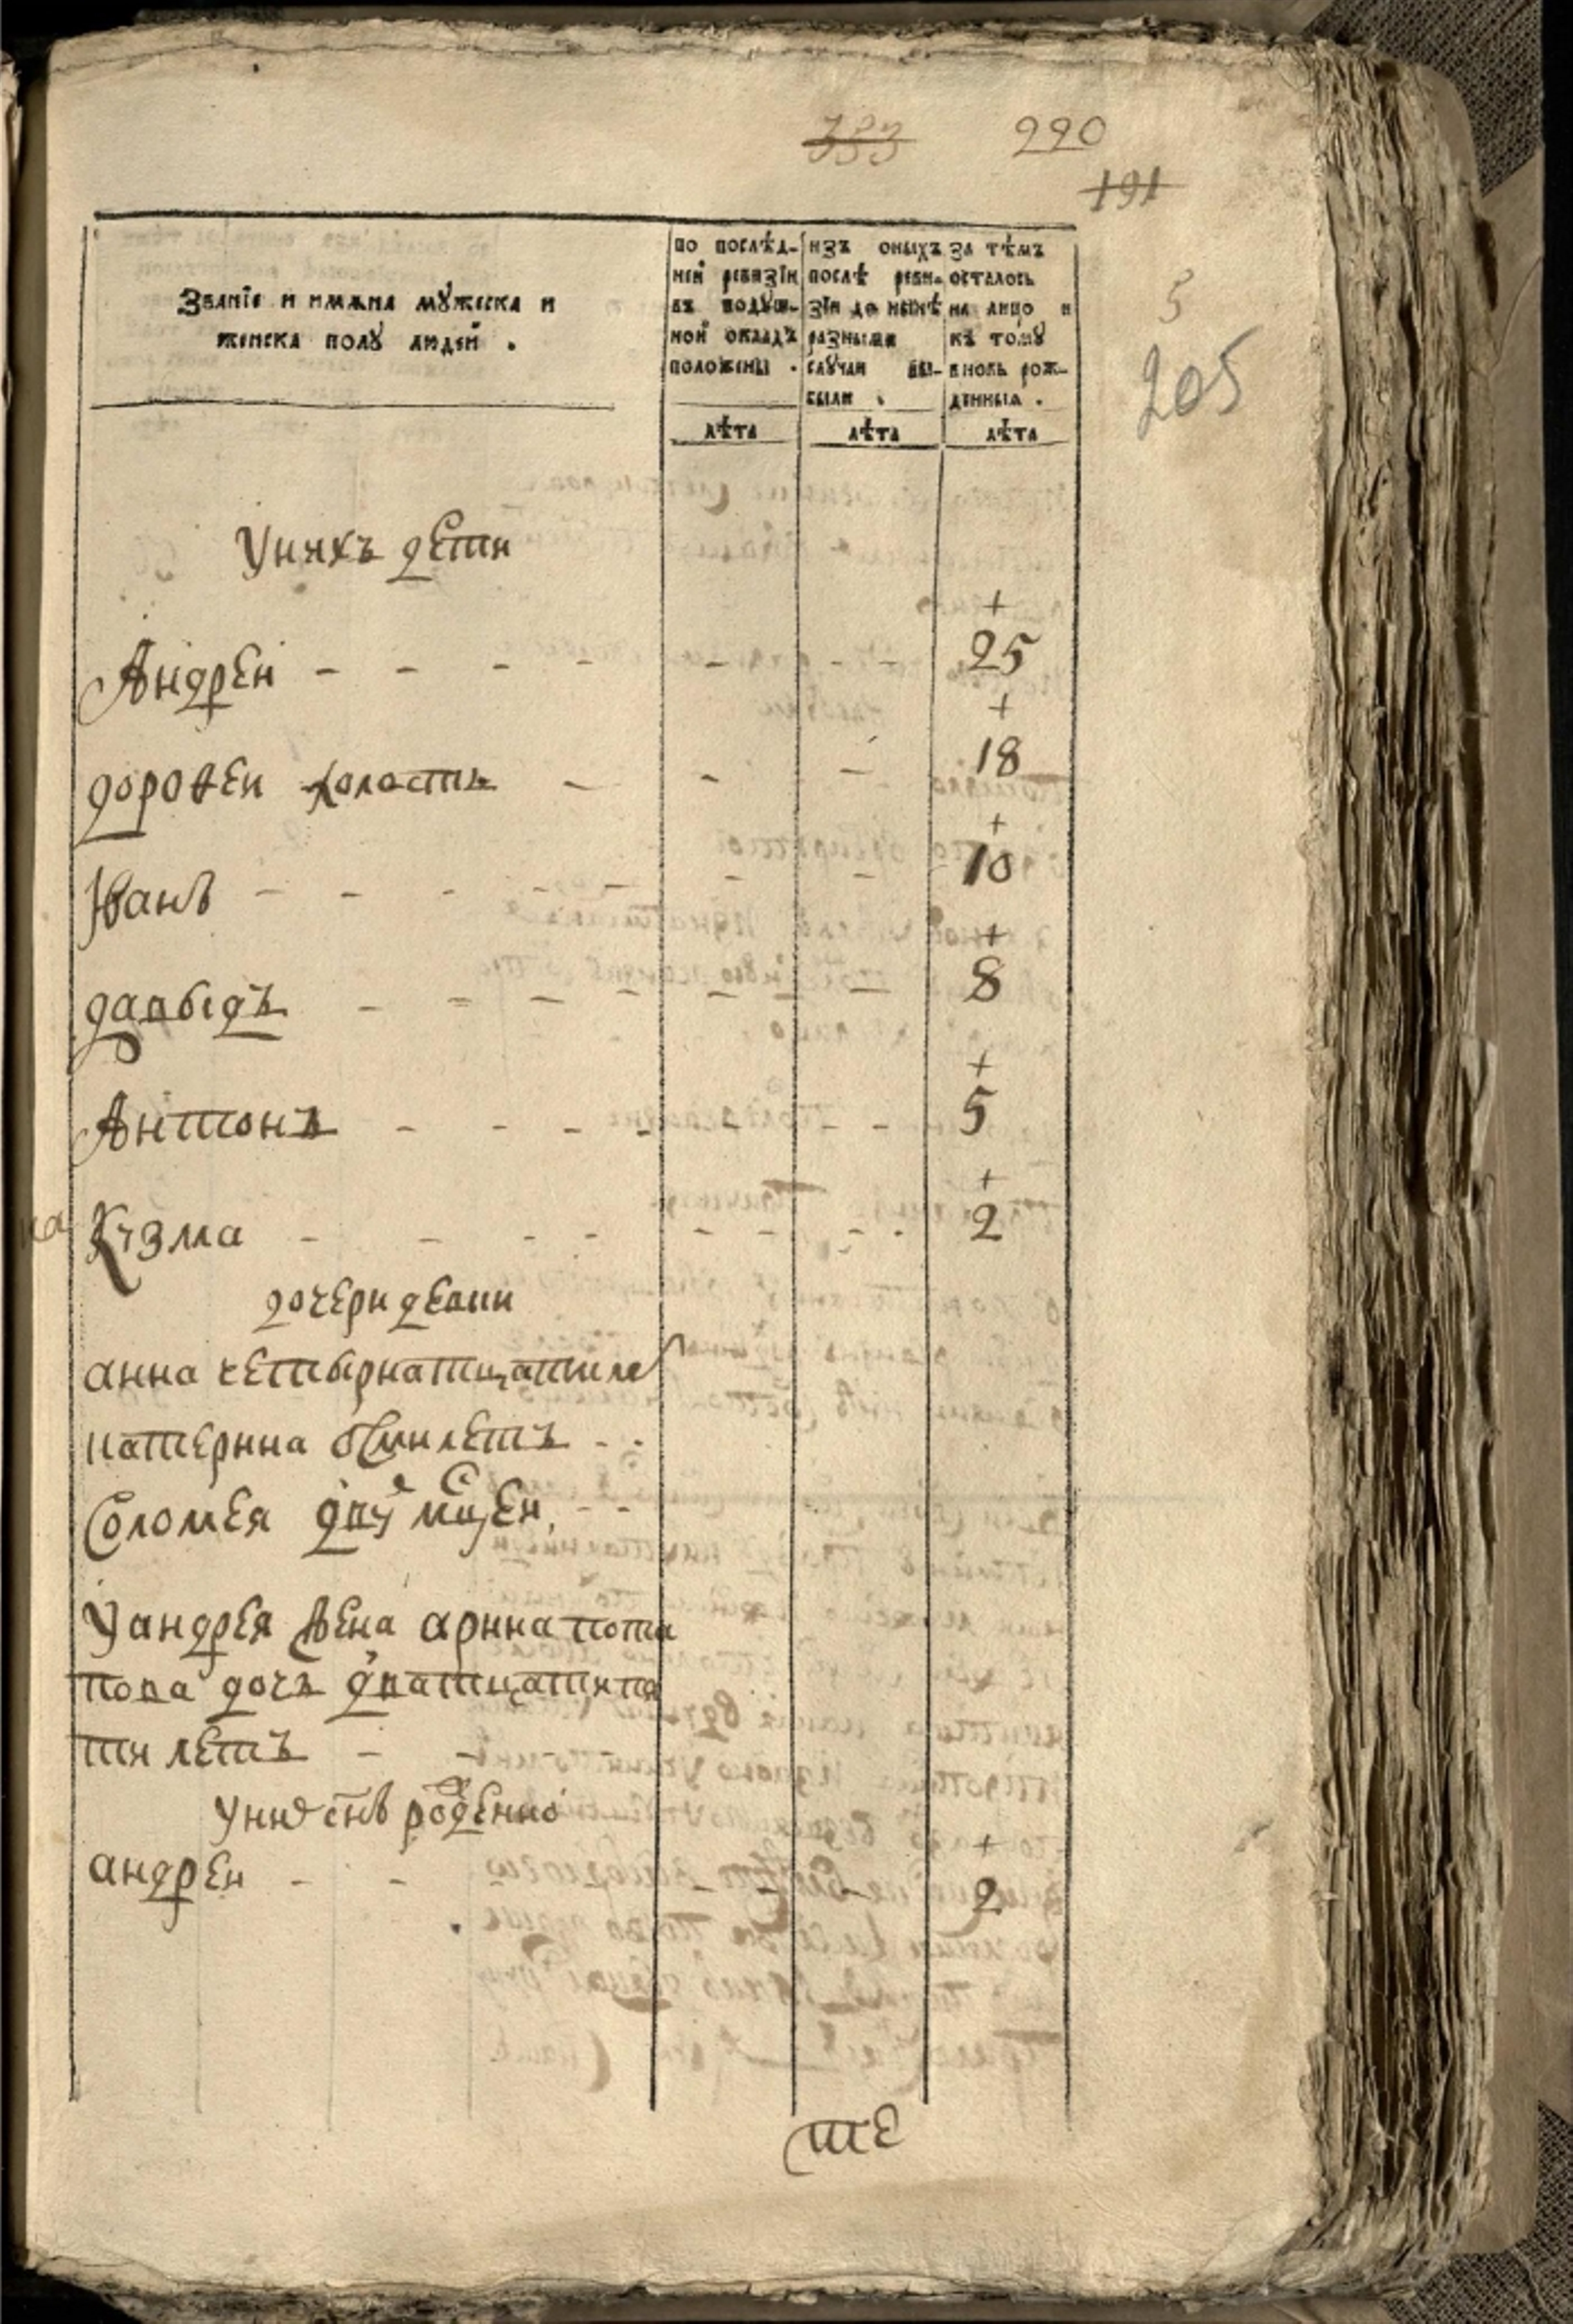 333 220
191
Званїе и имѧна мꙋжеска и
женска полꙋ людей .
по послѣд-
ней ревизїи
въ подꙋш-
ной окладъ
положены .
изъ оныхъ
послѣ реви-
зїи до нынѣ
разными
слꙋчаи вы-
были .
за тѣмъ
осталось
на лицо и
къ томꙋ
вновь рож-
денныѧ .
лѣта лѣта лѣта
5
205
Унихъ дети
+
Андреи - - - - - - - 25
+
дороѳеи холостъ - - - 18
+
Иванъ - - - - - - - 10
+
давыдъ - - - - - - 8
+
Антонъ - - - - - - - 5
+
Кузма - - - - - - - - 2
дочери девки
анна четырнатцати ле
катерина осми летъ - -
Соломея дву мцей - -
Уандрея жена арина пота
пова дочь дватцати пя
ти летъ - -
уних снъ рожденно
+
андреи - - - - 2